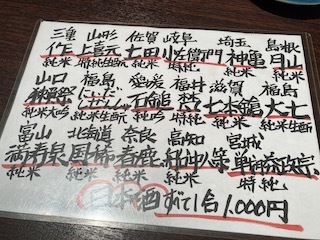 三重 山形 佐賀 岐阜 埼玉 島根
作 上喜元 七田 小左衛門 神亀 月山
純米 特純 生酛 純米 特純 純米 純米
山口 福島 愛媛 福井 滋賀 福島
獺祭 にいだしぜんしゅ 石鎚 七本鎗 大七
純米大吟 純米 純米 特純 純米 純米生酛
富山 北海道 奈良 高知 宮城
満寿泉 国稀 春鹿 船中八策 戦勝政宗
純米 純米 純米 特純
日本酒 すべて1合 1,000円